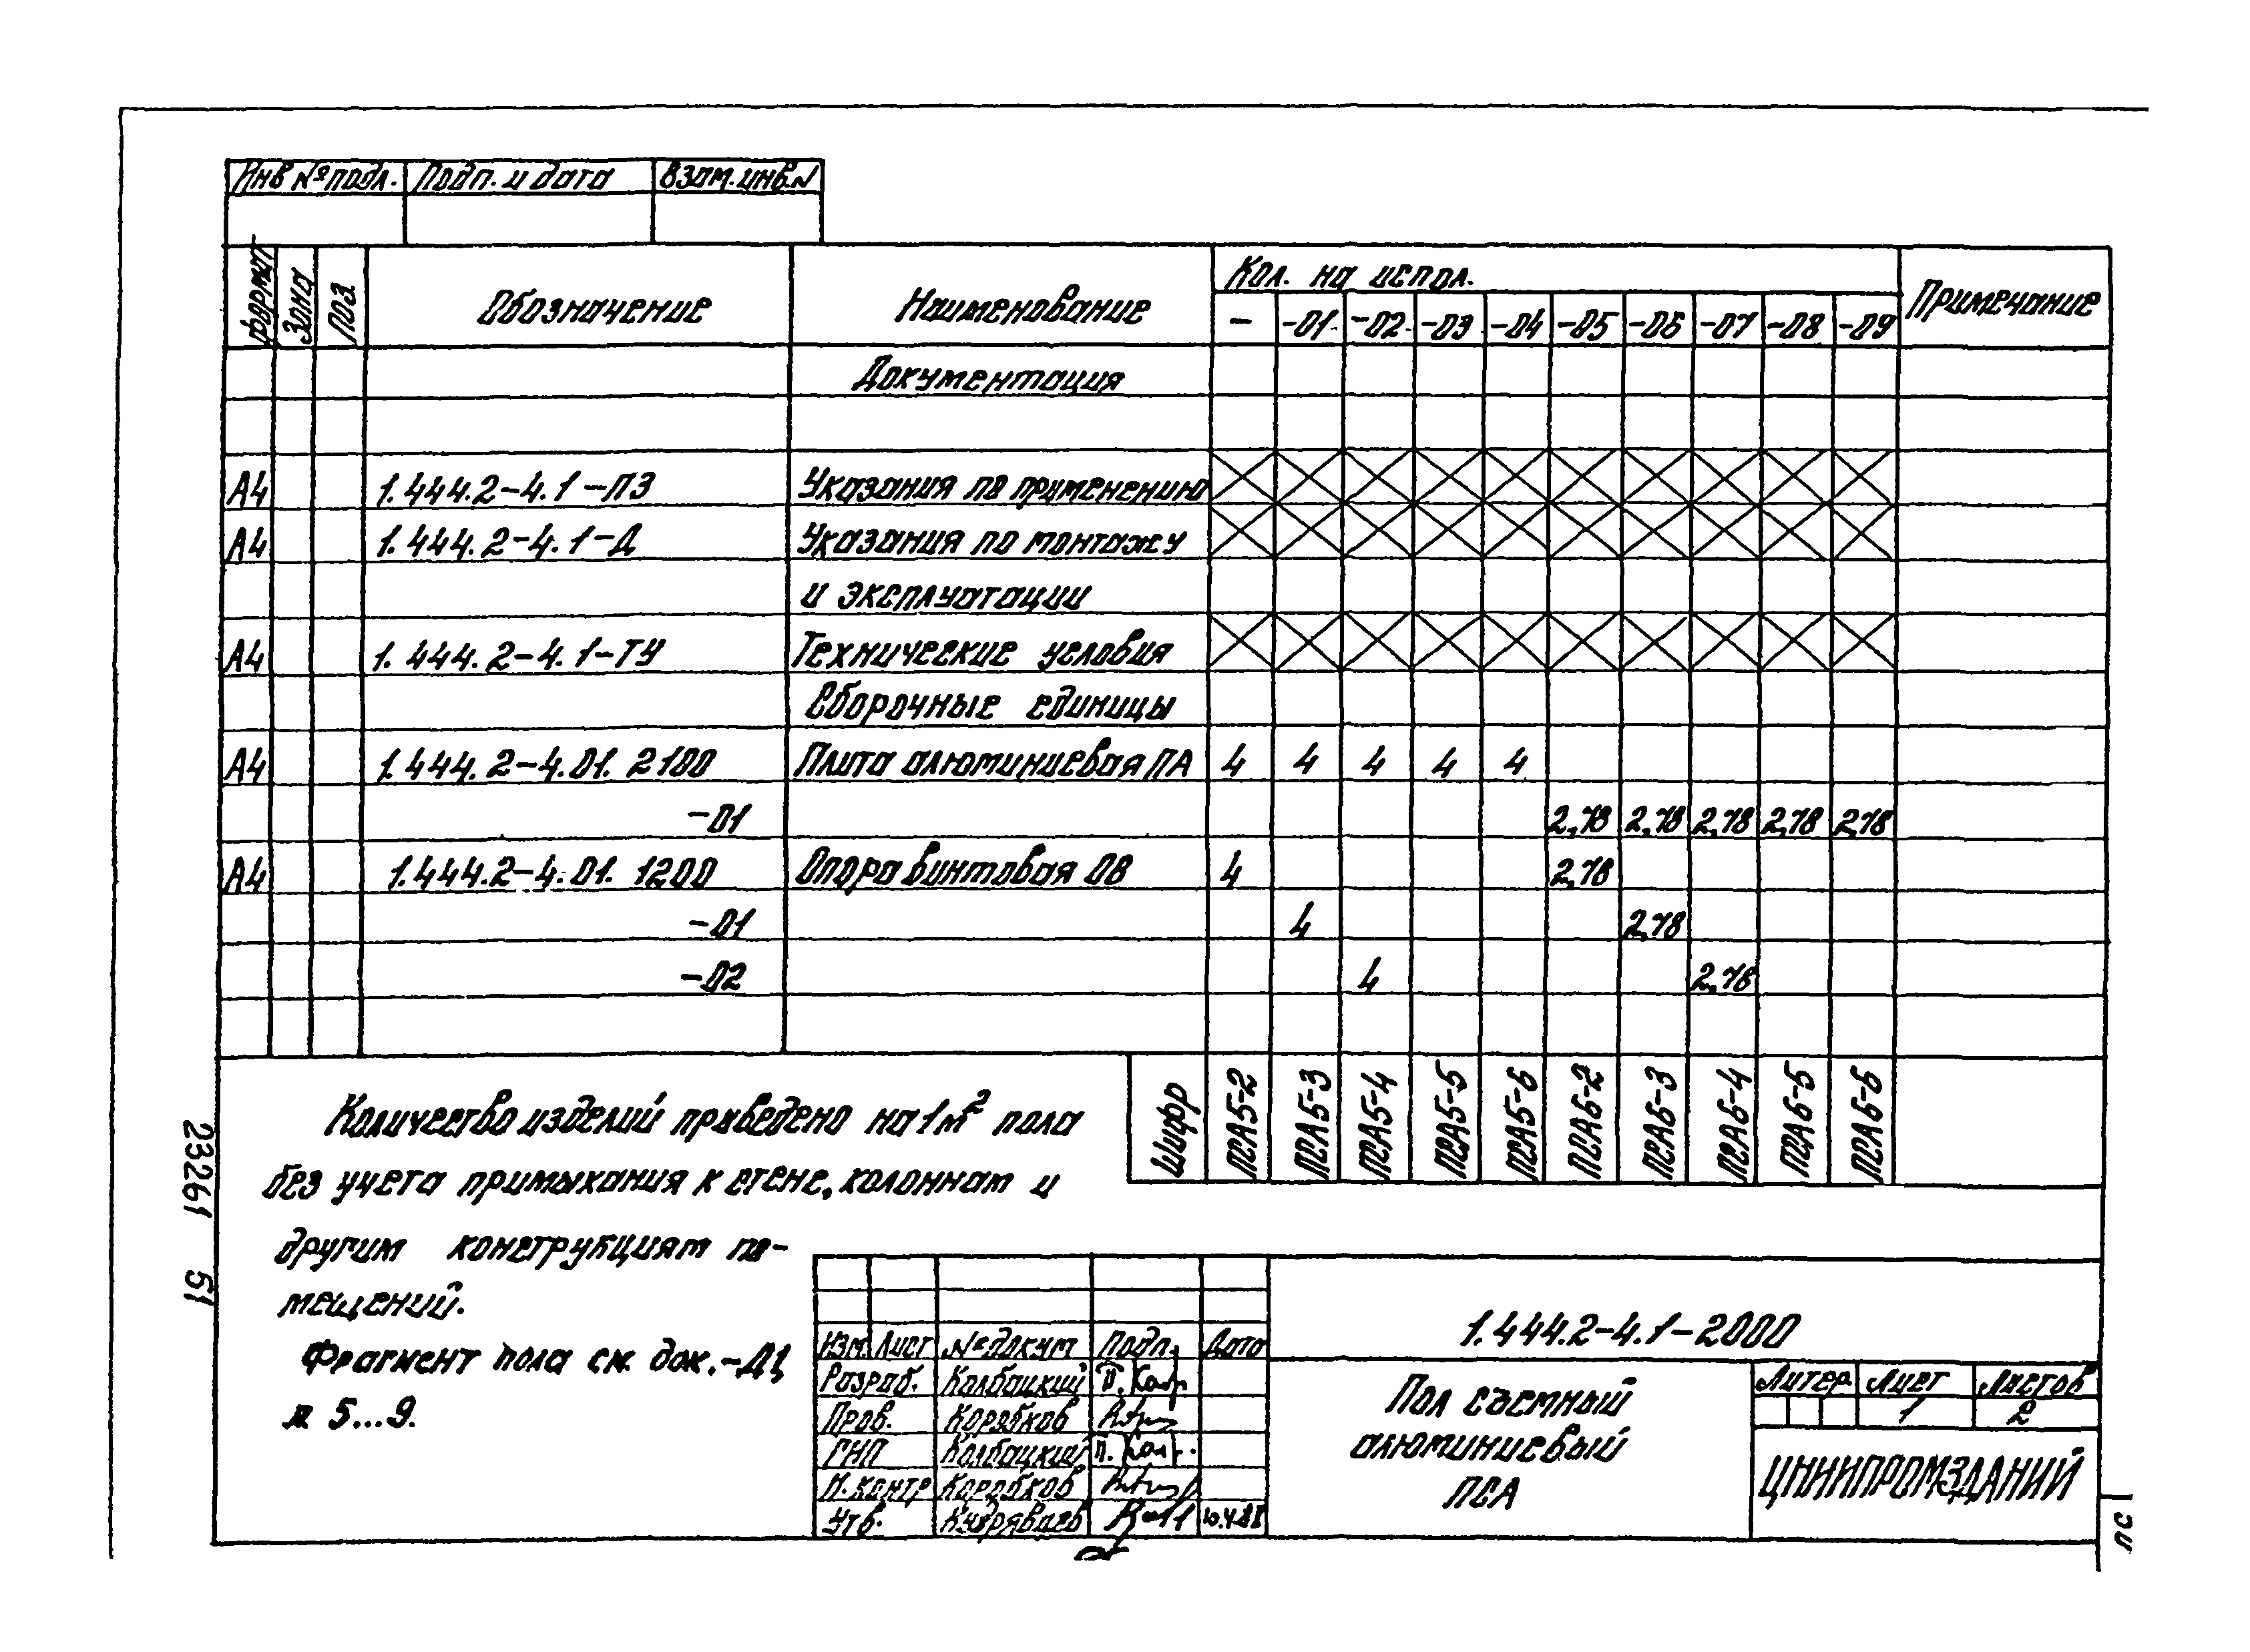 Инв № подл. Подп. и дата Взам. инв. N
формат Зона Поз Обозначение Наименование Кол. на испол. Примечание
- -01 -02 -03 -04 -05 -06 -07 -08 -09
Документация
А4 1.444.2-4.1-ПЗ Указания по применению
А4 1.444.2-4.1-Д Указания по монтажу
и эксплуатации
А4 1.444.2-4.1-ТУ Технические условия
Сборочные единицы
А4 1.444.2-4.01.2100 Плита алюминиевая ПА 4 4 4 4 4
-01 2,78 2,78 2,78 2,78 2,78
А4 1.444.2-4.01.1200 Опора винтовая ОВ 4 2,78
-01 4 2,78
-02 4 2,78
Шифр ПСА5-2 ПСА5-3 ПСА5-4 ПСА5-5 ПСА5-6 ПСА6-2 ПСА6-3 ПСА6-4 ПСА6-5 ПСА6-6
Количество изделий приведено на 1 м² пола
без учета примыкания к стене, колоннам и
другим конструкциям по-
мещений.
Фрагмент пола см. док.-Д1,
л 5...9.
23261 51
1.444.2-4.1-2000
Изм. Лист № докум Подп. Дата
Разраб. Колбацкий
Пров. Коробков
ГИП Колбацкий
Н.контр Коробков
Утв.
Пол съемный
алюминиевый
ПСА
Литер Лист Листов
1 2
ЦНИИПРОМЗДАНИЙ